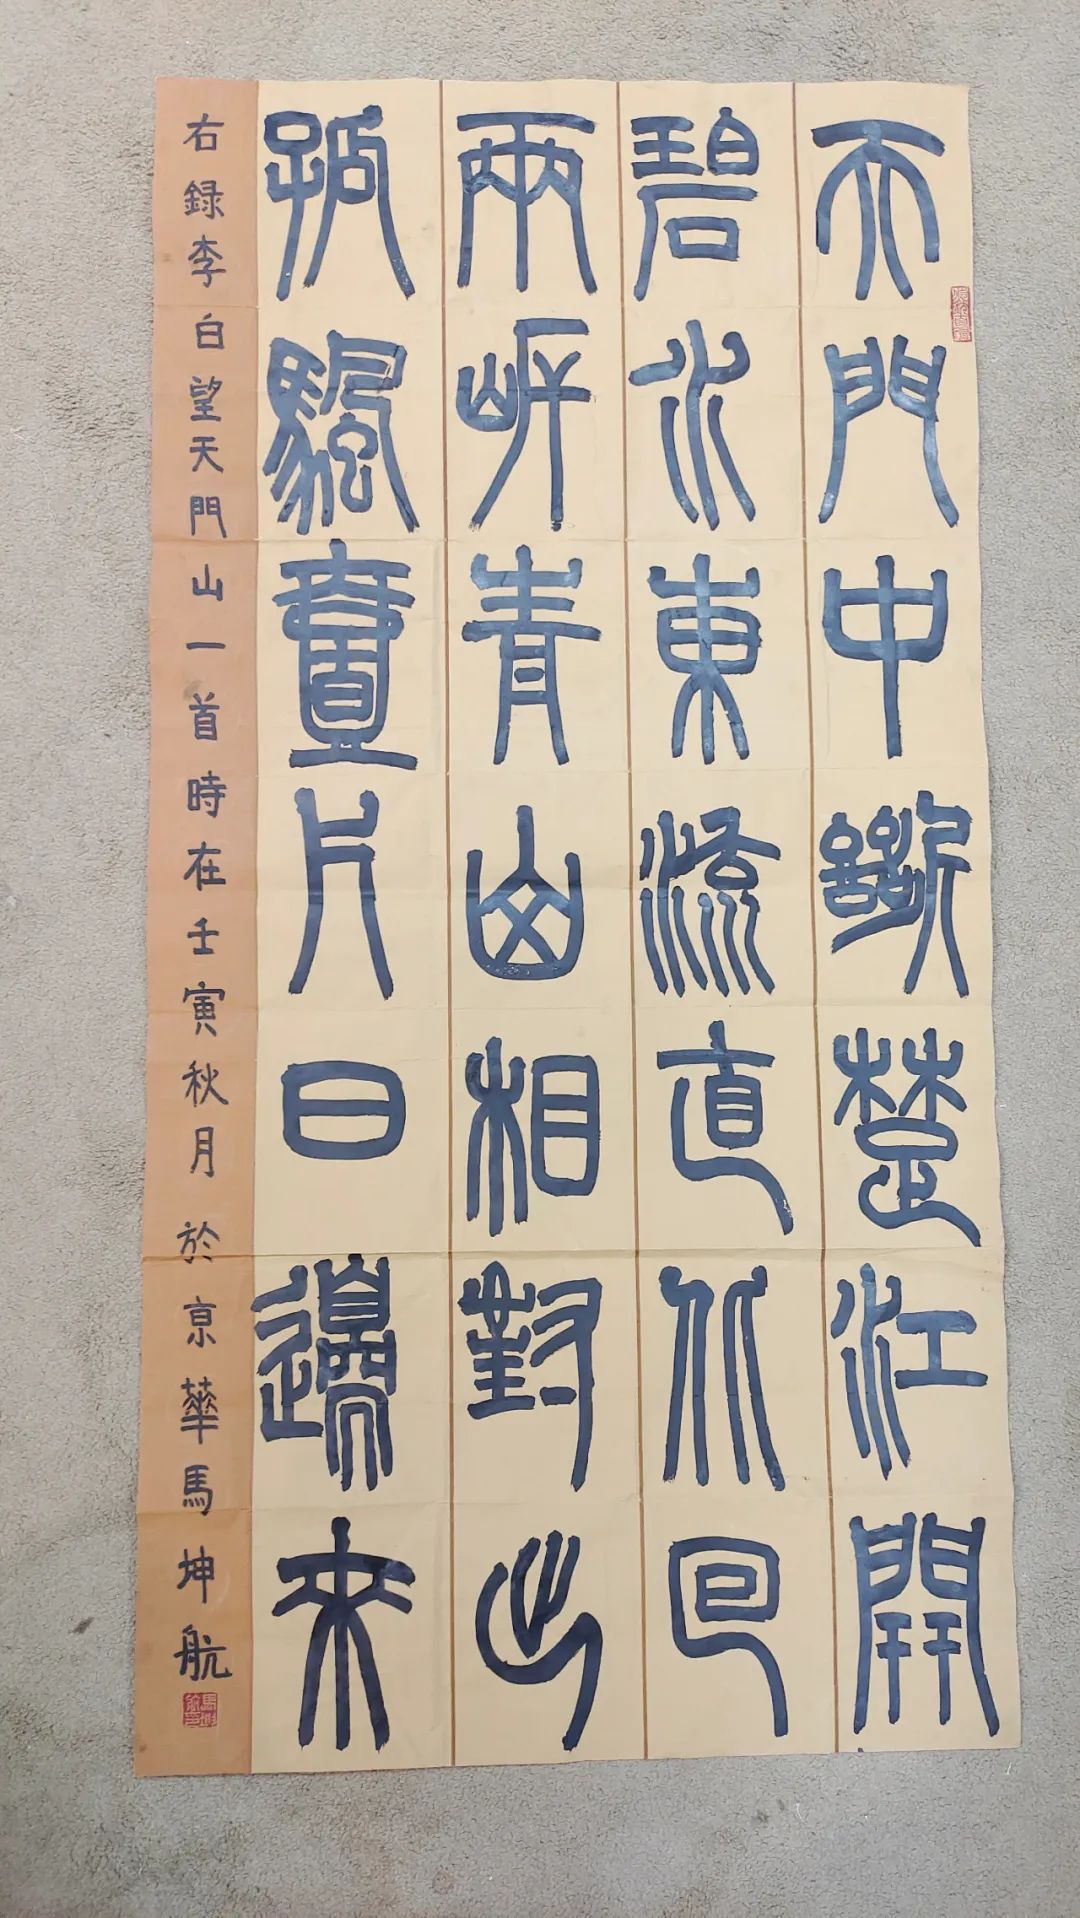 天門中斷楚江開
碧水東流直北回
兩岸青山相對出
孤颿壹片日邊來
右録李白望天門山一首時在壬寅秋月於京華馬坤航